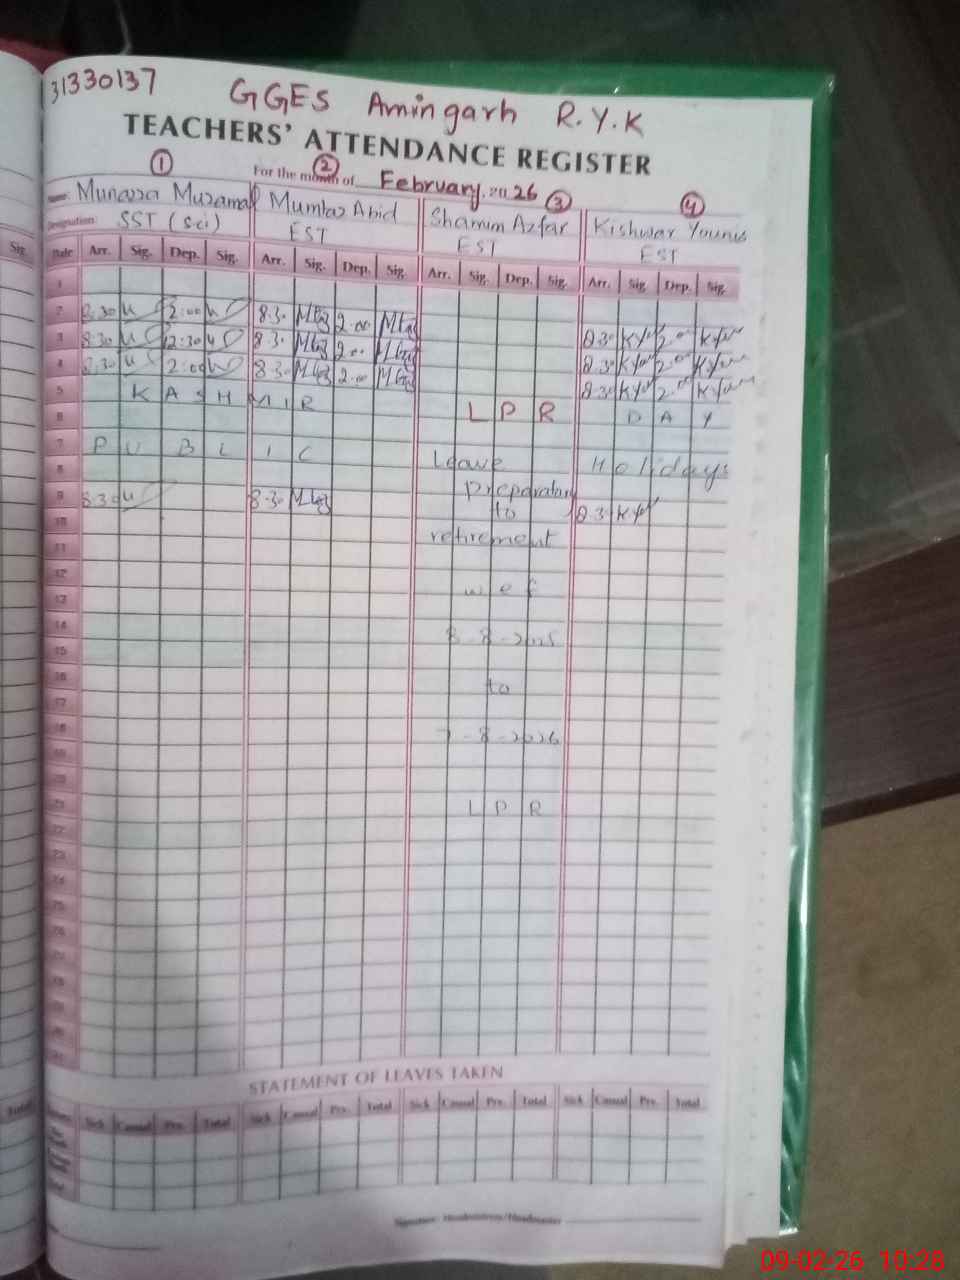 31330137 GGES Amingarh R.Y.K
TEACHERS' ATTENDANCE REGISTER
1 2 3 4
For the month of February 2026
Name: Munaza Muzamal Mumtaz Abid Shamim Azfar Kishwar Younis
Designation: SST (Sci) EST EST EST
Sig.
Date Arr. Sig. Dep. Sig. Arr. Sig. Dep. Sig. Arr. Sig. Dep. Sig. Arr. Sig. Dep. Sig.
1
2 8:30 2:00 8.30 2.00 8.30 2.00
3 8:30 12:30 8.30 2.00 8.30 2.00
4 8:30 2:00 8.30 2.00 8.30 2.00
5 KASHMIR LPR DAY
6
7 PUBLIC Leave Holidays
8
9 8:30 8.30 Preparatory 8.30
10 to
11 retirement
12
13 w e f
14
15 8-8-2025
16 to
17
18 7-8-2026
19
20
21 LPR
22
23
24
25
26
27
28
29
30
31
STATEMENT OF LEAVES TAKEN
Total Sick Casual Prv. Total Sick Casual Prv. Total Sick Casual Prv. Total Sick Casual Prv. Total
Signature Headmistress/Headmaster
09-02-26 10:28